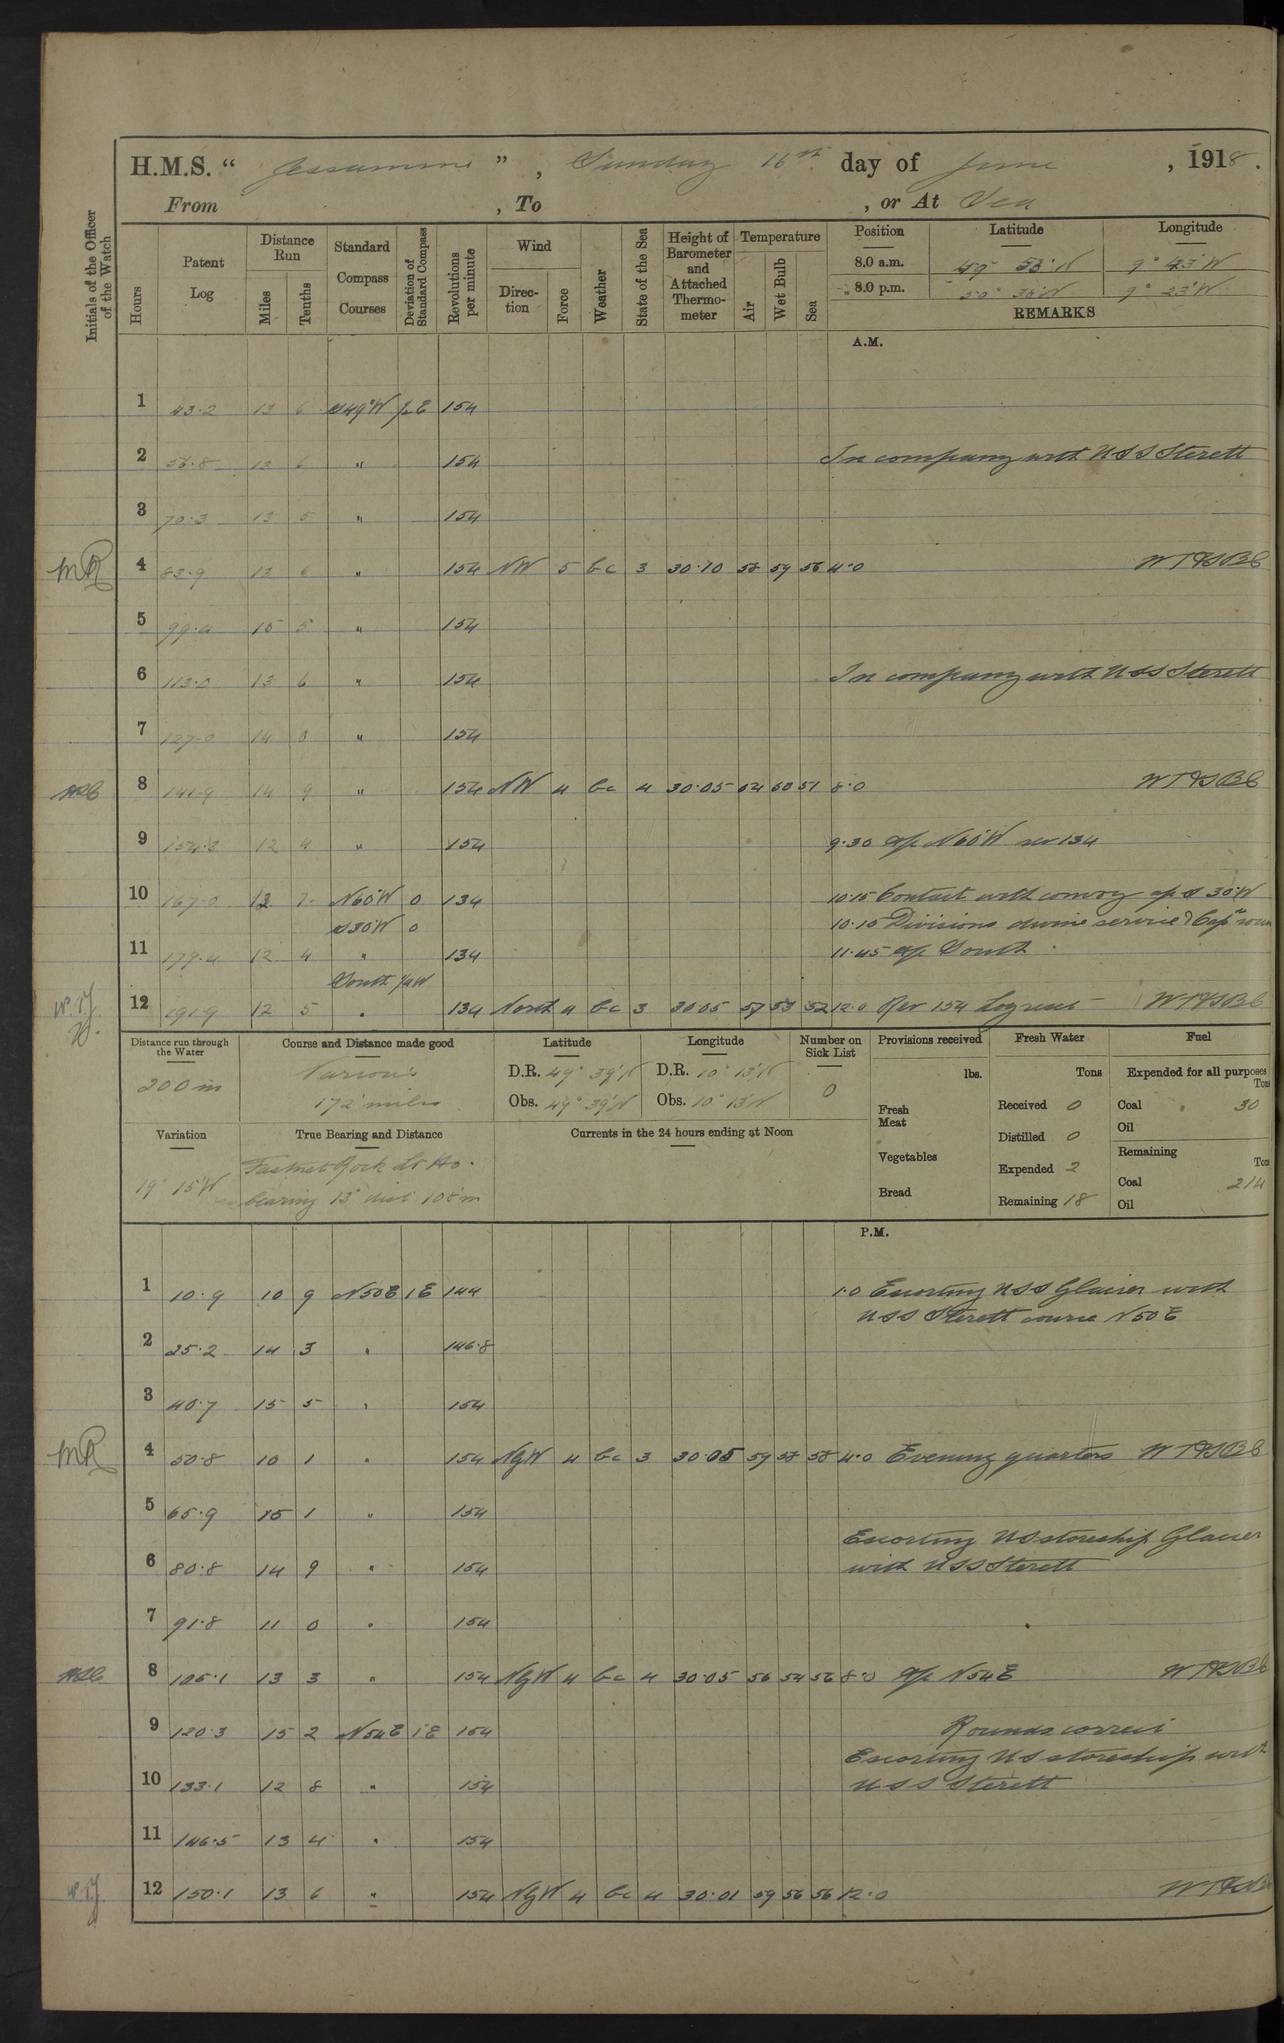 H.M.S. " Jessamine ", Sunday 16th day of June, 1918.
From , To , or At Sea
Initials of the Officer of the Watch
Hours
Patent Log
Distance Run
Miles
Tenths
Standard Compass Courses
Deviation of Standard Compass
Revolutions per minute
Wind
Direction
Force
Weather
State of the Sea
Height of Barometer and Attached Thermometer
Temperature
Air
Wet Bulb
Sea
Position Latitude Longitude
8.0 a.m. 49° 53' N 9° 43' W
8.0 p.m. 50° 38' N 9° 23' W
REMARKS
A.M.
1 43.2 13 6 S49°W ½E 154
2 56.8 13 6 " 154 In company with USS Sterett
3 70.3 13 5 " 154
MR 4 83.9 13 6 " 154 NW 5 bc 3 30.10 4.0 WT&SBC
5 99.4 15 5 " 154
6 113.0 13 6 " 154 In company with USS Sterett
7 127.0 14 0 " 154
8 141.9 14 9 " 154 NW 4 bc 4 30.05 8.0 WT&SBC
9 154.3 12 4 " 154 9.30 a/c N60W rev 134
10 167.0 12 7 N60W 0 134 10.15 Contact with convoy a/c S 30°W
S30W 0 10.15 Divisions divine service & Capns
11 179.4 12 4 " 134 11.45 a/c South
South ¼W
12 191.9 12 5 " 134 North 4 bc 3 30.05 57 53 52 12.0 Rev 154 Log reset WT&SBC
Distance run through the Water Course and Distance made good Latitude Longitude Number on Sick List Provisions received Fresh Water Fuel
200 m Various 172 miles D.R. 49° 39' N D.R. 10° 13' W 0 lbs. Tons Expended for all purposes Tons
Obs. 49° 39' N Obs. 10° 13' W Fresh Meat Received 0 Coal 30
Oil
Variation True Bearing and Distance Currents in the 24 hours ending at Noon Distilled 0 Remaining
19° 15' W Fastnet Rock Lt Ho. Vegetables Expended 2 Tons
bearing 13° dist 108 m Bread Remaining 18 Coal 214
Oil
P.M.
1 10.9 10 9 N50E 1E 144 1.0 Escorting USS Glacier with
USS Sterett course N50E
2 25.2 14 3 " 146.8
3 40.7 15 5 " 154
MR 4 50.8 10 1 " 154 NgW 4 bc 3 30.05 59 58 58 4.0 Evening quarters WT&SBC
5 65.9 15 1 " 154
Escorting US storeship Glacier
6 80.8 14 9 " 154 with USS Sterett
7 91.8 11 0 " 154
8 105.1 13 3 " 154 NgW 4 bc 4 30.05 56 54 56 8.0 a/c N54E WT&SBC
9 120.3 15 2 N54E 1E 154 Rounds correct
Escorting US storeship with
10 133.1 12 8 " 154 USS Sterett
11 146.5 13 4 " 154
12 150.1 13 6 " 154 NgW 4 bc 4 30.01 59 56 56 12.0